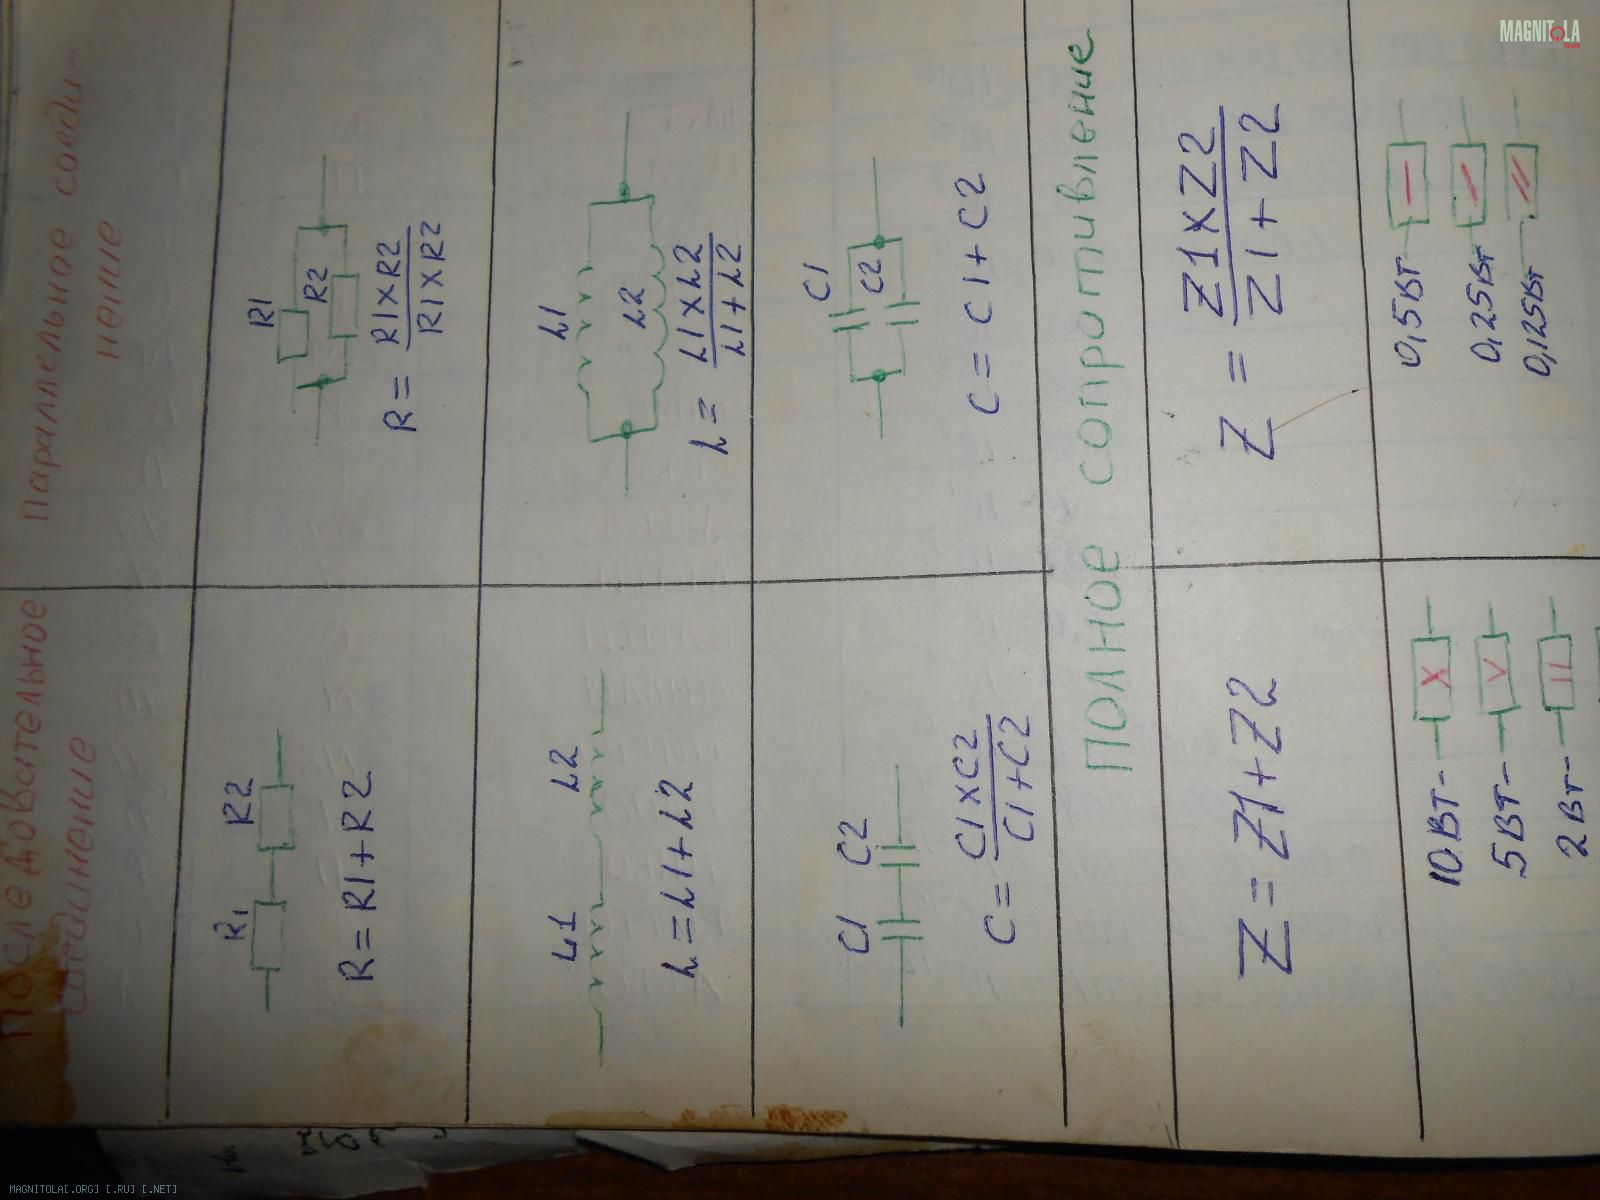 Последовательное
соединение
Параллельное соеди-
нение
R1 R2
R=R1+R2
R1
R2
R = R1xR2
R1xR2
L1 L2
L=L1+L2
L1
L2
L = L1xL2
L1+L2
C1 C2
C = C1xC2
C1+C2
C1
C2
C = C1+C2
Полное сопротивление
Z = Z1+Z2
Z = Z1xZ2
Z1+Z2
10Вт- X
5Вт- V
2Вт- II
0,5Вт
0,25Вт
0,125Вт
MAGNITOLA
MAGNITOLA[.ORG] [.RU] [.NET]